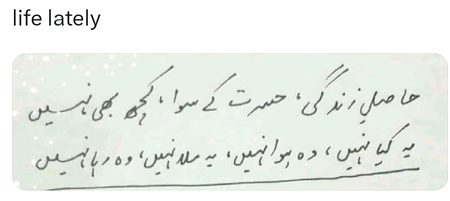 life lately
حاصلِ زندگی، حسرت کے سوا، کچھ بھی نہیں
یہ کیا نہیں، وہ ہوا نہیں، یہ ملا نہیں، وہ رہا نہیں